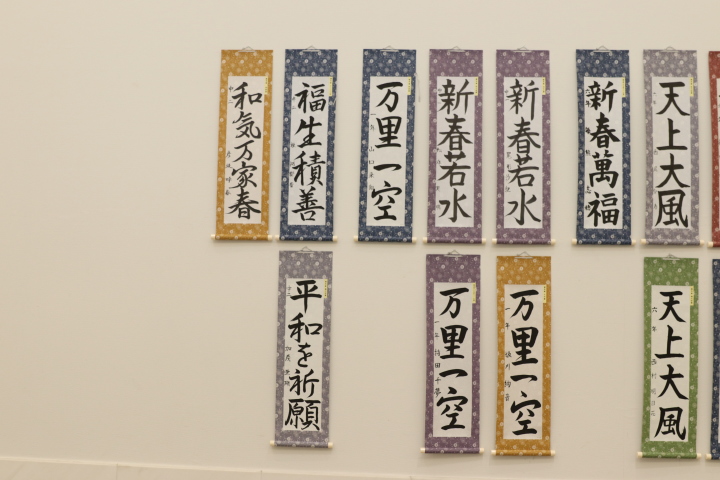 和気万家春
福生積善
万里一空
新春若水
新春若水
新春萬福
天上大風
平和を祈願
万里一空
万里一空
天上大風